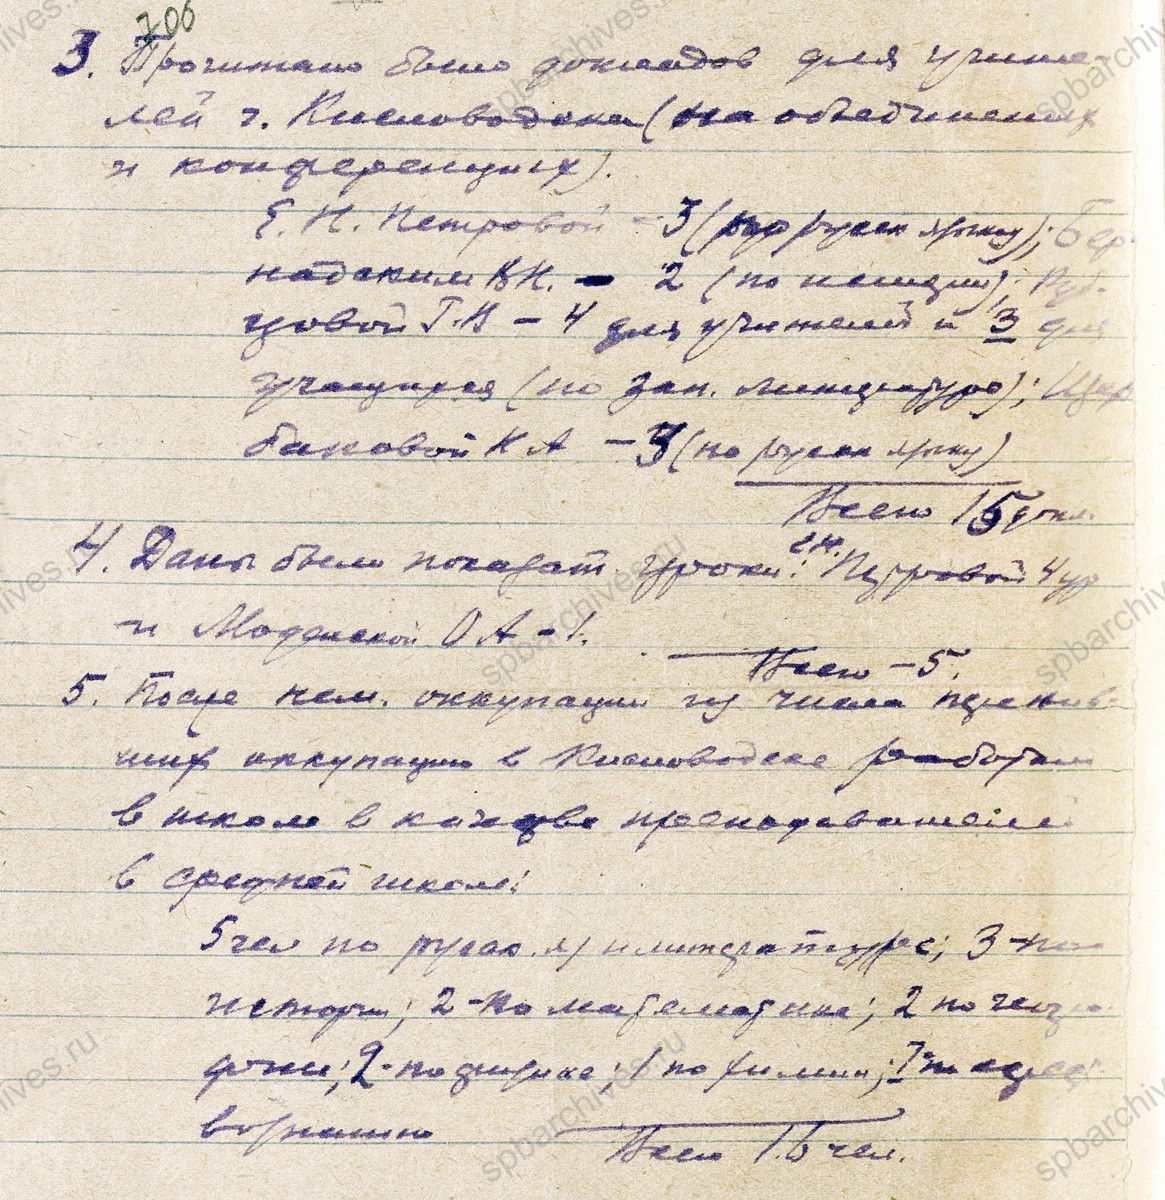 706
3. Прочитано было докладов для учите-
лей г. Кисловодска (на объединениях
и конференциях).
Е. Н. Петровой - 3 (по русск языку); Бер-
надским В.Н. - 2 (по истории);
цовой Г.В - 4 для учителей и 3 для
учащихся (по зап. литературе); Щер
баковой К А - 3 (по русск языку)
Всего 15 докл.
4. Даны были показат. уроки: Е.Н. Петровой 4 ур
и Моденской О А - 1.
Всего - 5.
5. После нем. оккупации из числа пережив-
ших оккупацию в Кисловодске работали
в школе в качестве преподавателей
в средней школе:
5 чел по русск. яз и литературе; 3 - по
истории; 2 - по математике; 2 по
2 - по физике; 1 по химии; 1
Всего 16 чел.
spbarchives.ru